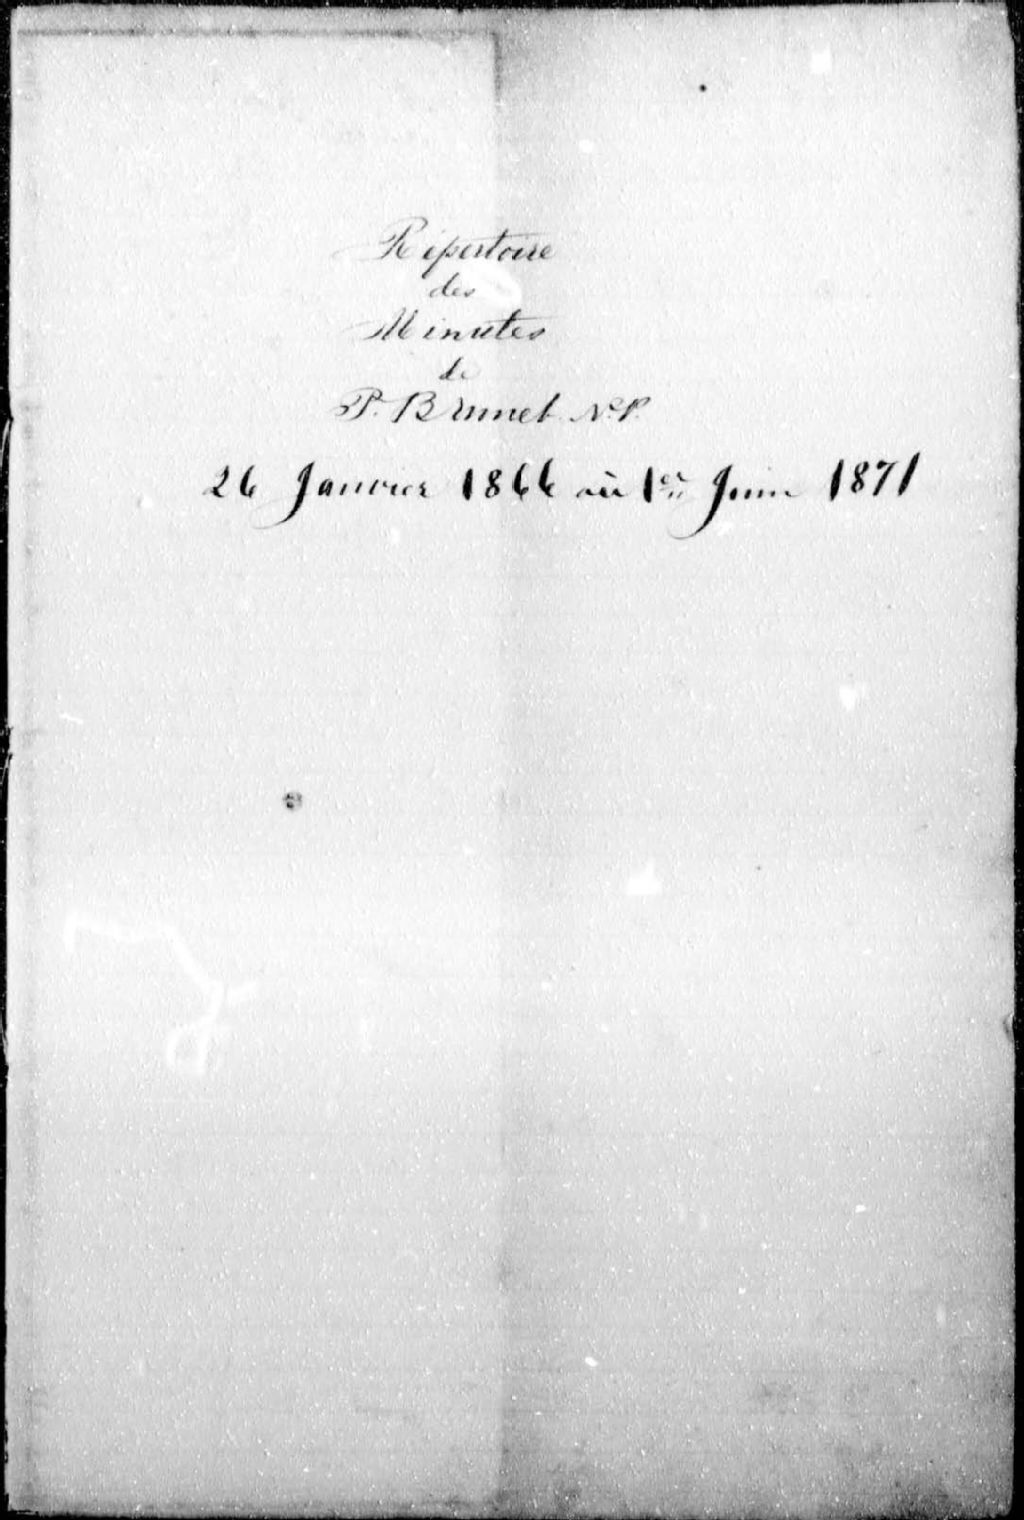 Répertoire
des
Minutes
de
P. Brunet N.P.
26 Janvier 1866 au 1er Juin 1871